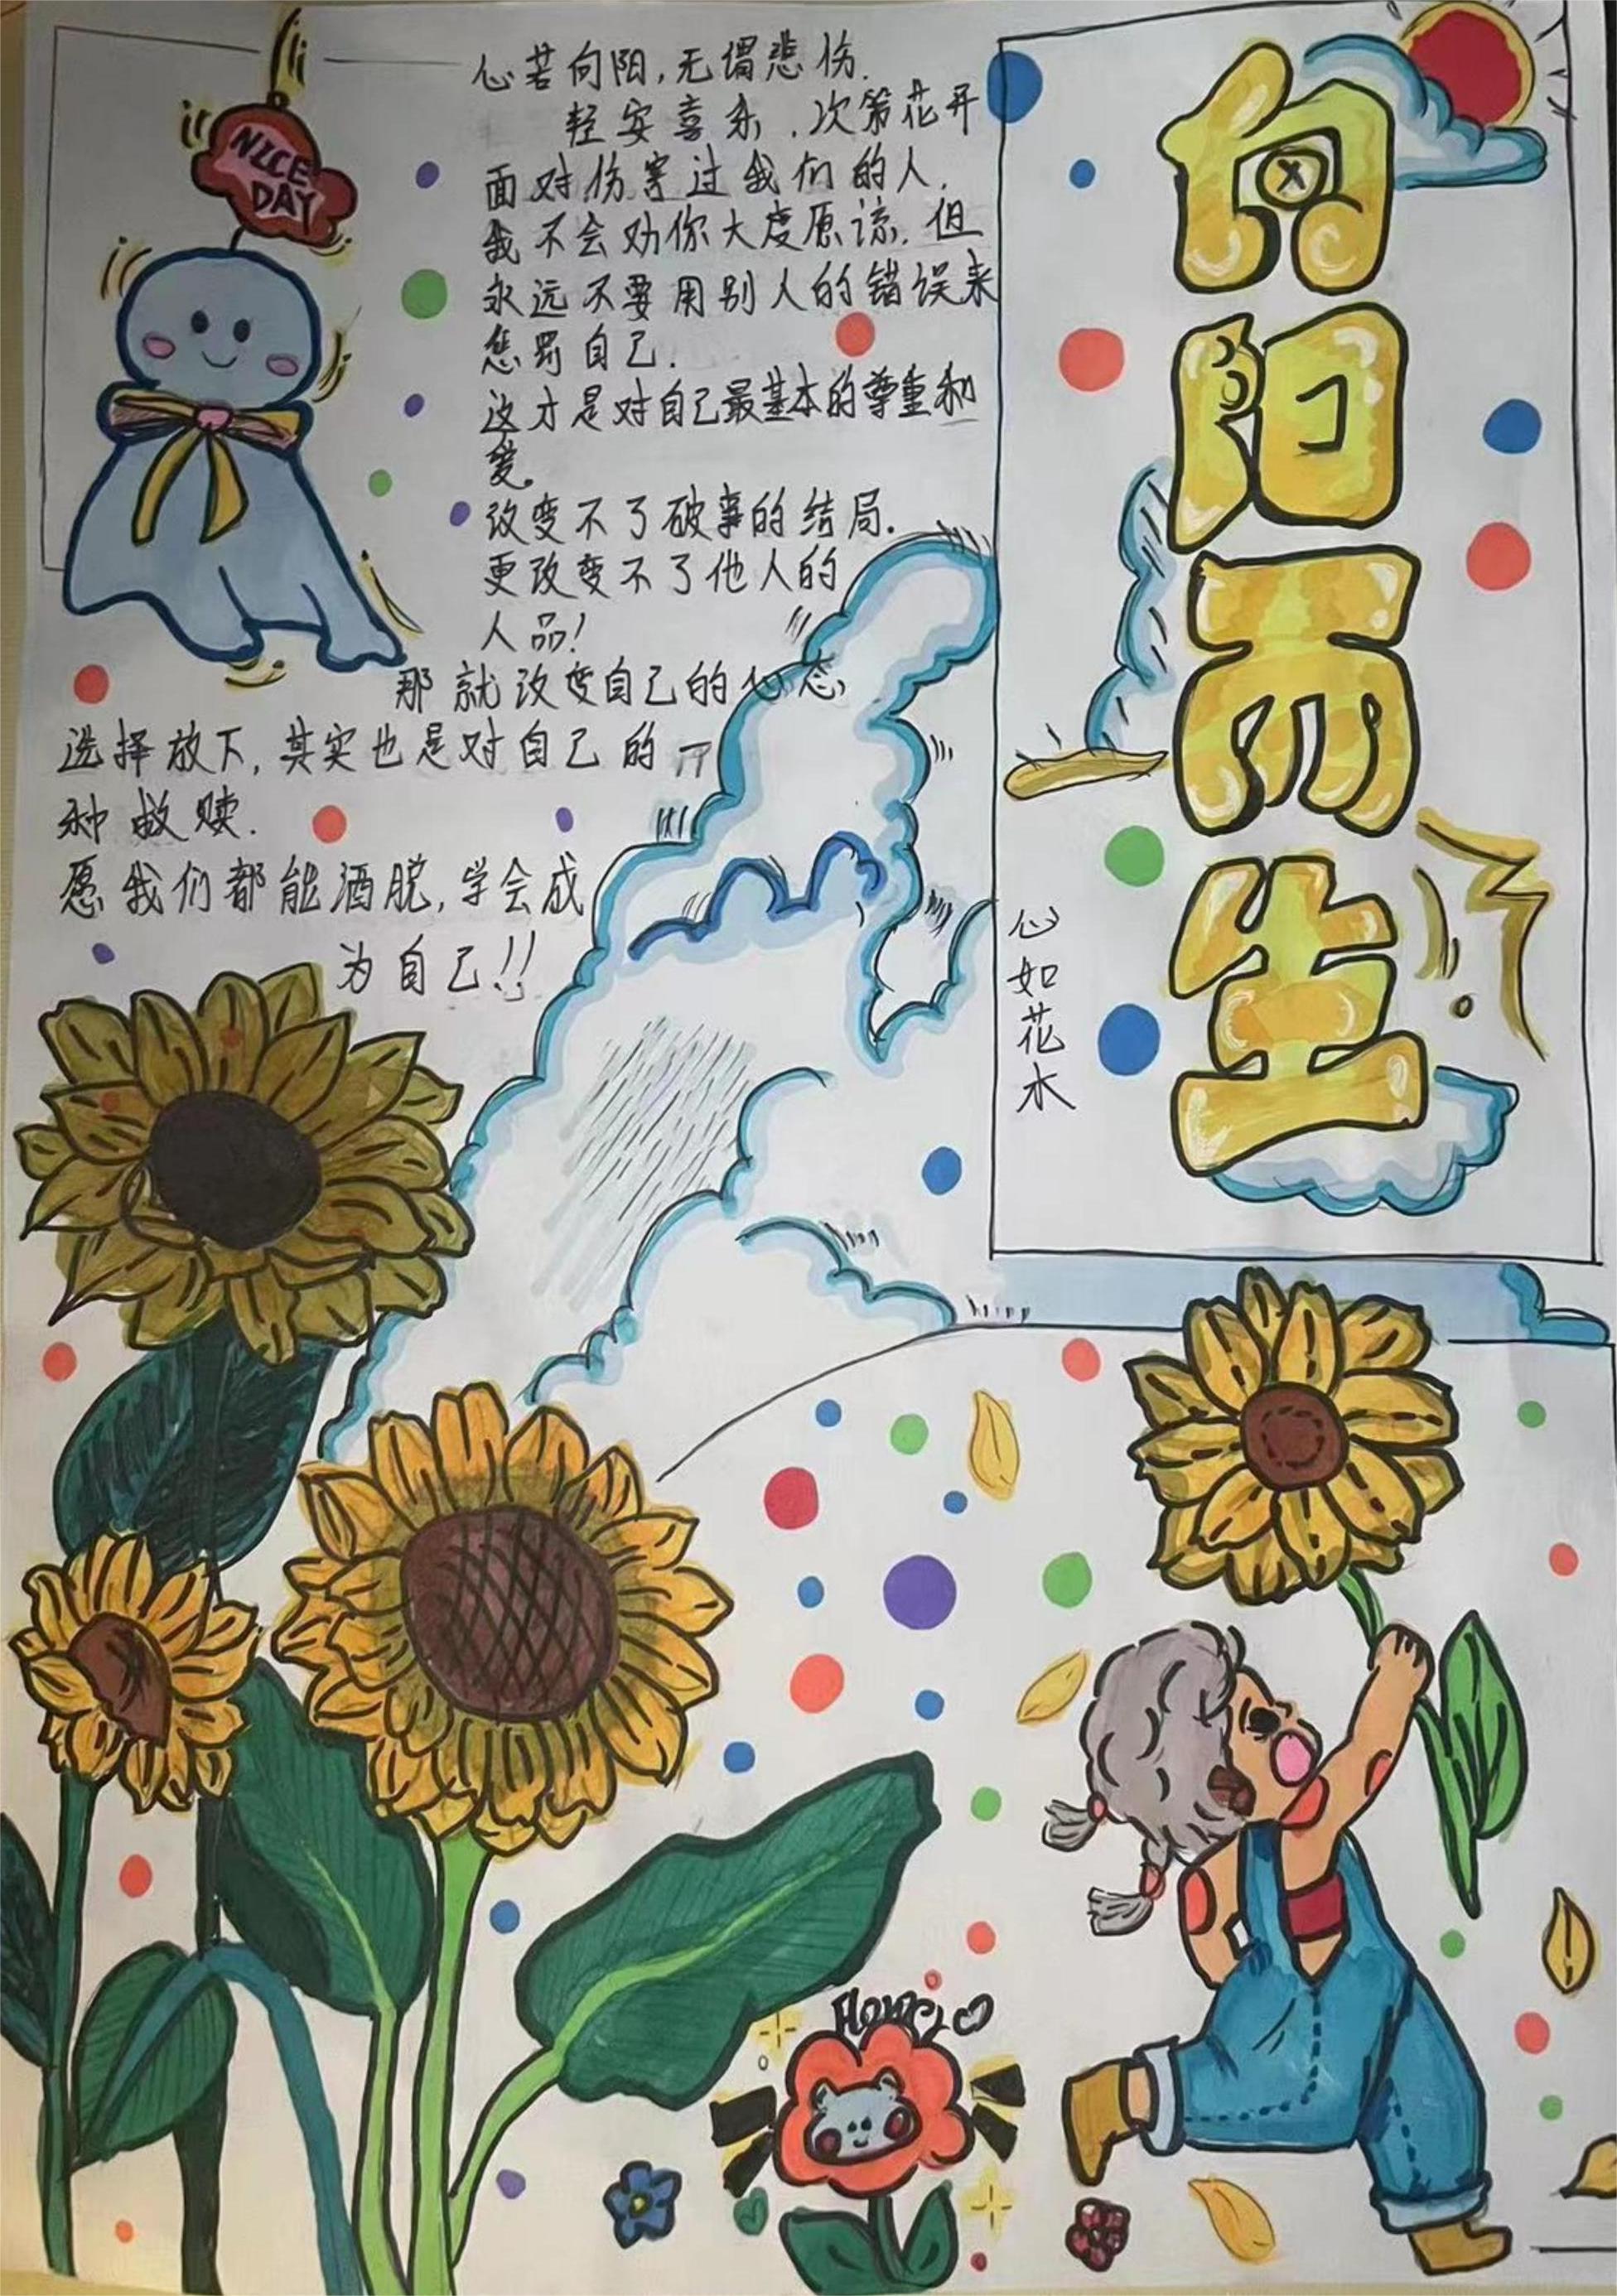 NICE
DAY
心若向阳,无谓悲伤.
轻安喜乐,次第花开
面对伤害过我们的人.
我不会劝你大度原谅.但
永远不要用别人的错误来
惩罚自己.
这才是对自己最基本的尊重和
爱。
改变不了破事的结局.
更改变不了他人的
人品!
那就改变自己的心态,
选择放下,其实也是对自己的一
种救赎.
愿我们都能洒脱,学会成
为自己!!
向阳而生
心如花木